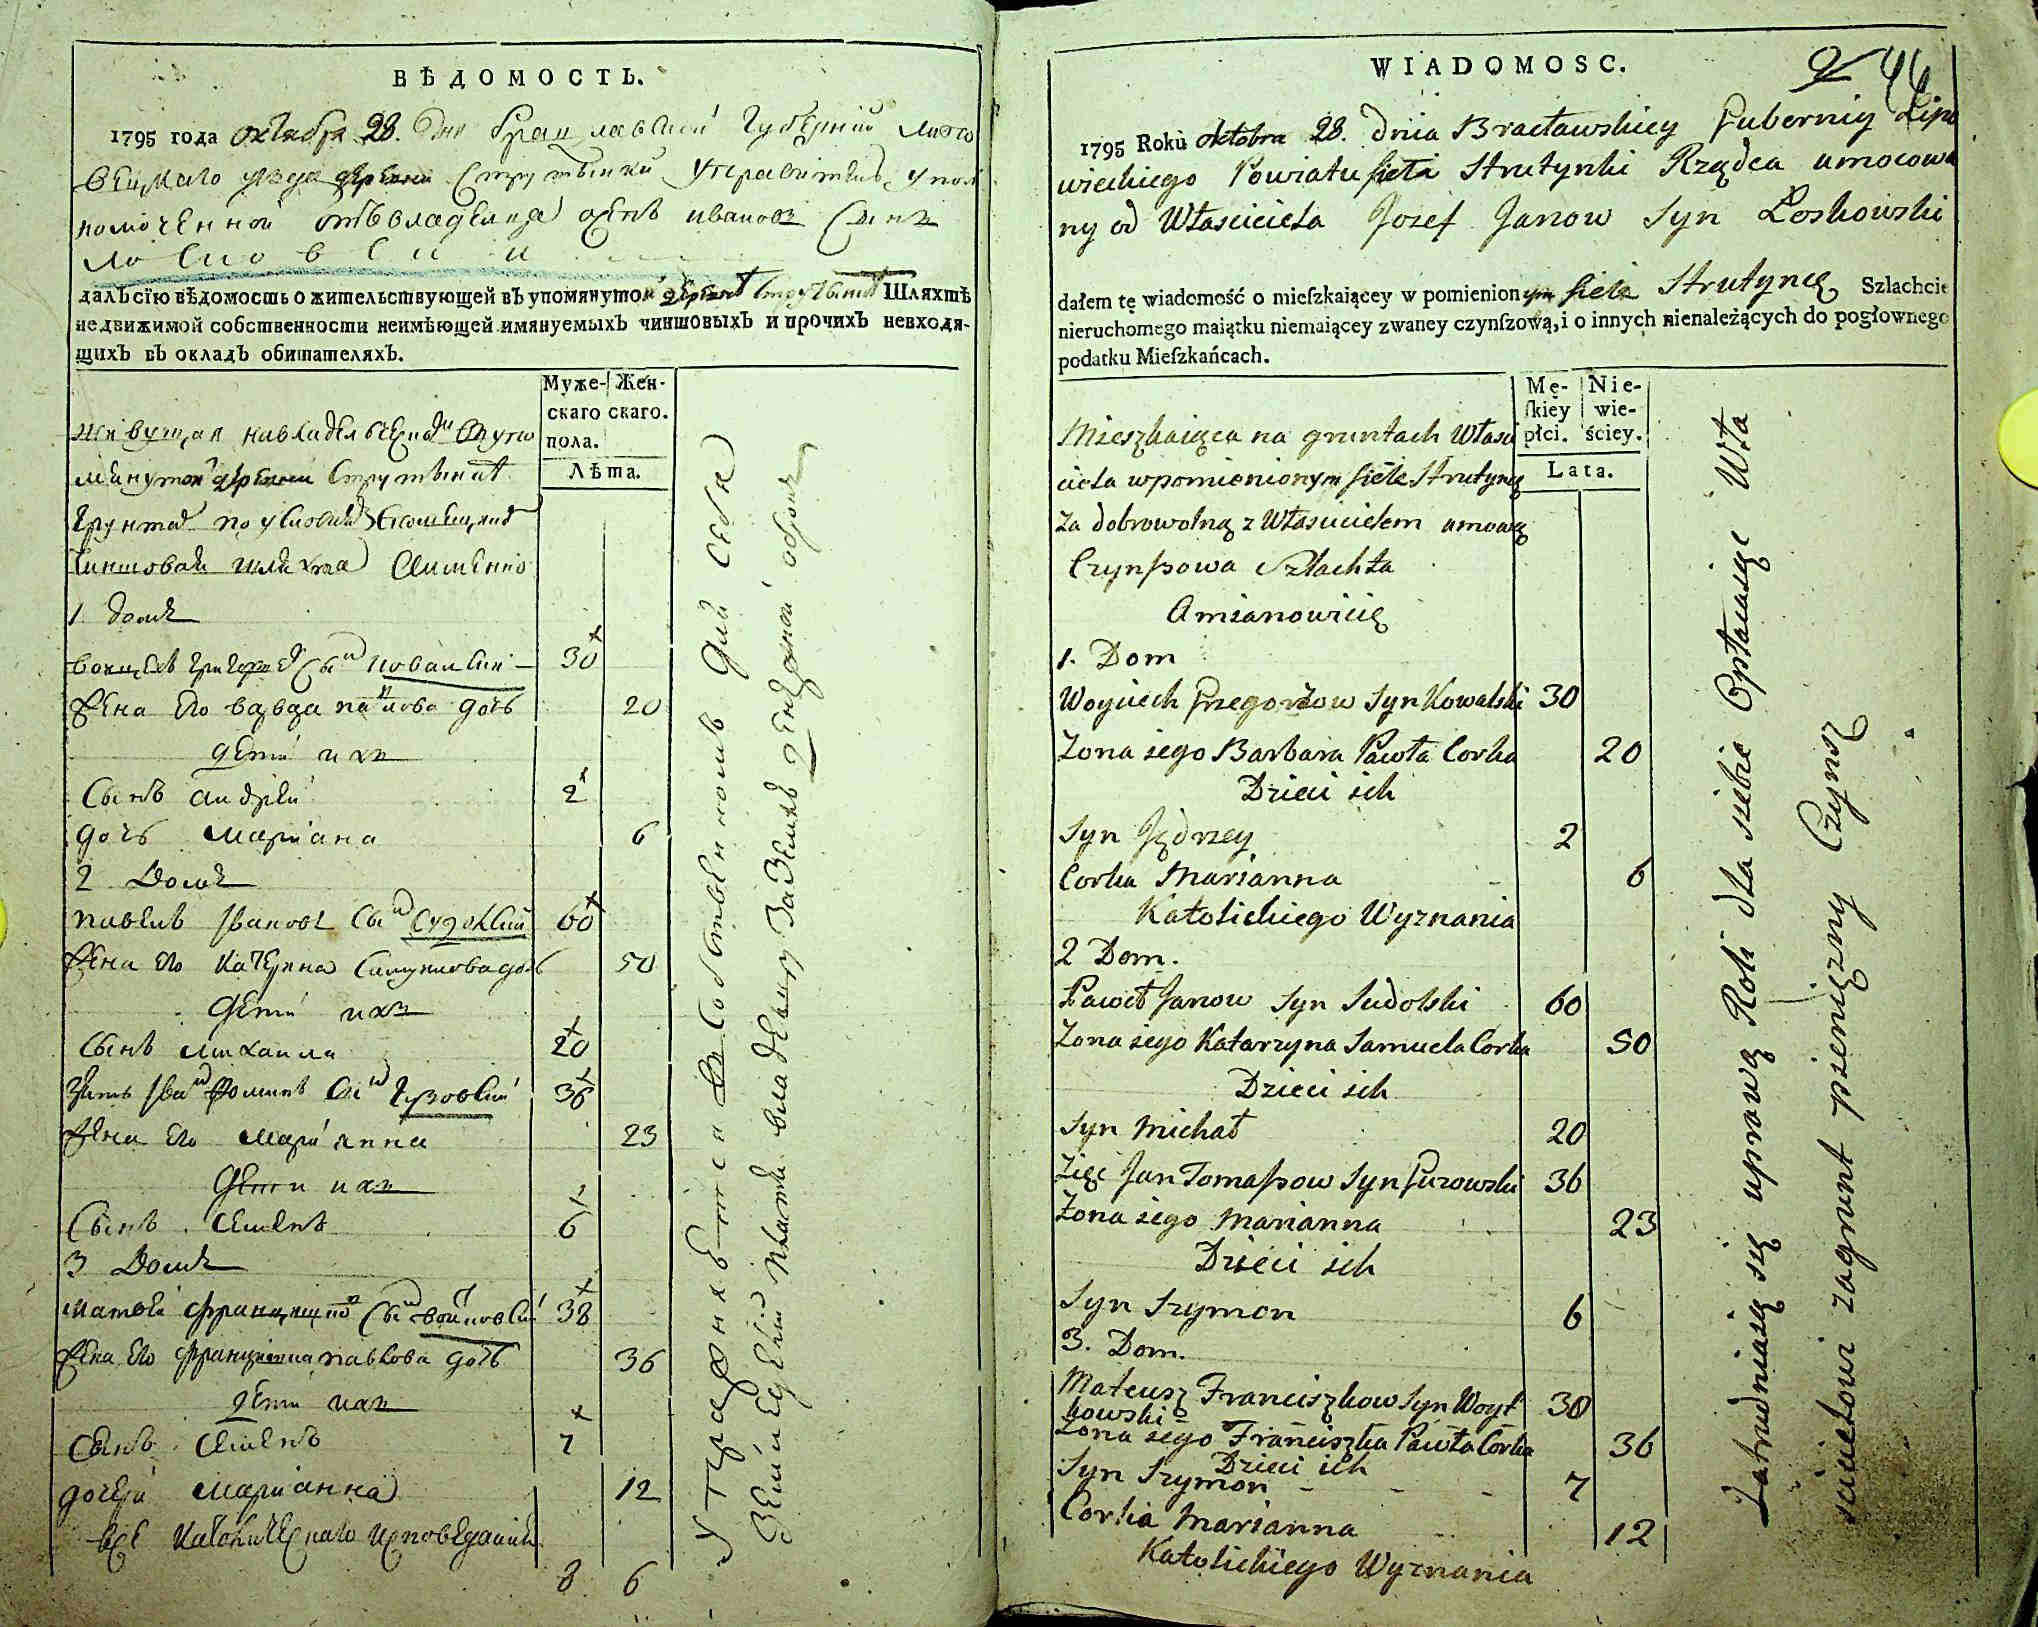 ВѢДОМОСТЬ.
1795 года октября 28. дня Брацлавской Губернии Липо
вецкаго уезда деревни Струтинки Управитель упол
номоченной отъ владельца Осипъ Ивановъ Сынъ
Лосковский
далъ сїю вѣдомость о жительствующей въ упомянутой деревне Струтинке Шляхтѣ
недвижимой собственности неимѣющей имянуемыхъ чиншовыхъ и прочихъ невходя-
щихъ въ окладъ обитателяхъ.
Муже- Жен-
скаго скаго.
пола.
Лѣта.
живущая на владельческой въ упо
мянутой деревне Струтинке
грунтах по условию
чиншовая шляхта Имянно
1 домъ
Войцехъ Григорьев Сын Ковалский 30
Жена Его павлова дочь 20
дети ихъ
Сынъ андрей 2
дочь Мариана 6
2 Домъ
павелъ Ивановъ Сын Судолский 60
Жена Его Катерина Самуилова дочь 50
дети ихъ
Сынъ Михаила 20
Зять Иван Фоминъ Сын Гузовский 36
Жена Его Марианна 23
дети ихъ
Сынъ Семенъ 6
3 Домъ
Матвей Францишков Сын Войтковский 38
Жена Его Францишка павлова дочь 36
дети ихъ
Сынъ Семенъ 7
дочери Марианна 12
все Католическаго исповедания
8 6
Упражняется в Собственном для себя
земли платя владельцу за землю денежной оброкъ
WIADOMOSC.
2 44
1795 Roku oktobra 28. Dnia Bracławskiey Gubernij Lipo
wieckiego Powiatu sieła Strutynki Rządca umocowa
ny od Właściciela Jozef Janow Syn Loskowski
dałem tę wiadomość o mieſzkaiącey w pomienionym siele Strutyncę Szlachcie
nieruchomego maiątku niemaiącey zwaney czynſzową, i o innych nienależących do pogłownego
podatku Mieſzkańcach.
Mę- Nie-
ſkiey wie-
płci. ściey.
Lata.
Mieszkaiąca na gruntach Własci
ciela wpomienionym siele Strutyncę
za dobrowolną z Własucielem umową
Czynszowa Szlachta
Amianowicię
1. Dom
Woyciech Grzegorzow Syn Kowalski 30
Zona iego Barbara Pawła Corka 20
Dzieci ich
Syn Jędrzey 2
Corka Marianna 6
Katolickiego Wyznania
2 Dom.
Paweł Janow Syn Sudolski 60
Zona iego Katarzyna Samuela Corka 50
Dzieci ich
Syn Michał 20
Zięć Jan Tomaszow Syn Guzowski 36
Zona iego Marianna 23
Dzieci ich
Syn Szymon 6
3. Dom.
Mateusz Franciszkow Syn Woyt
kowski 38
Zona iego Franciszka Pawła Corka 36
Dzieci ich
Syn Szymon 7
Corka Marianna 12
Katolickiego Wyznania
Zatrudniaią się uprawą Roli dla siebie Opłaiąc Wła
scicielowi zagrunt pieniężny Czynsz